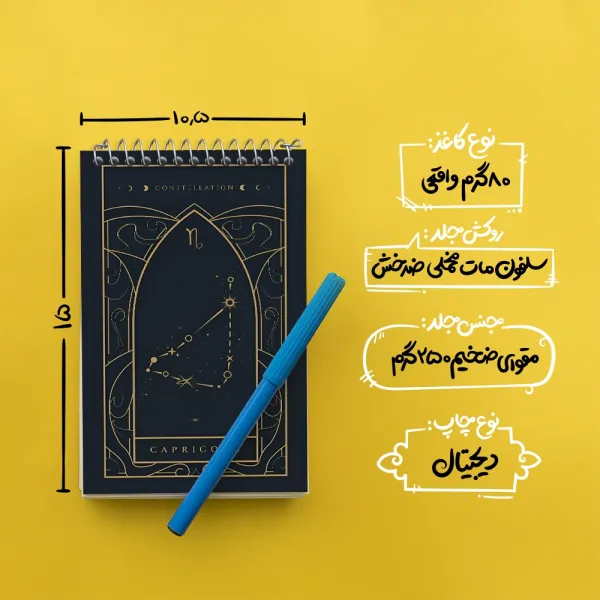 ۱۰٫۵
۱۵
CONSTELLATION
CAPRICO
نوع کاغذ:
۸۰گرم واقعی
روکش جلد:
سلفون مات مخملی ضدخش
جنس جلد:
مقوای ضخیم ۲۵۰ گرم
نوع چاپ:
دیجیتال